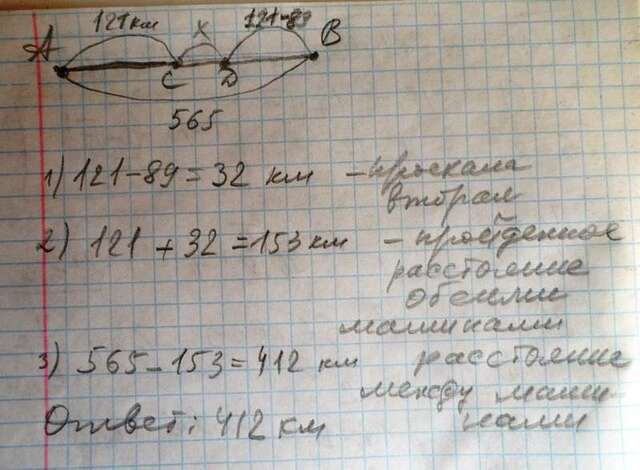 121 км x 121-89
A B
C D
565
1) 121-89=32 км - проехала
вторая
2) 121+32=153 км - пройденное
расстояние
обеими
машинами
3) 565-153=412 км расстояние
между маши
нами
Ответ: 412 км